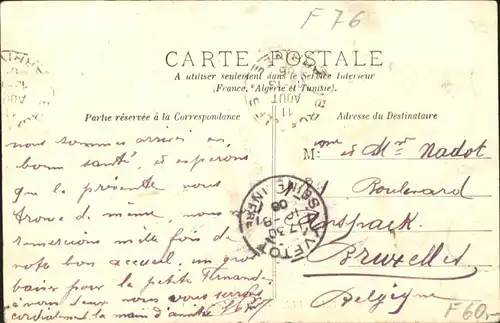 F 76
CARTE POSTALE
A utiliser seulement dans le Service Intérieur
(France, Algérie et Tunisie).
Partie réservée à la Correspondance
Adresse du Destinataire
nous sommes arrivés en
bonne santé et espérons
que la présente vous
trouve de même, nous
remercions mille fois de
votre bon accueil, un gros
baiser pour la petite Fernande
à nous deux nous vous
cordialement la main d'amitié
M me et Mr Nadot
Boulevard
Anspach
Bruxelles
Belgique
YVETOT
SEINE INFRE
17 30
08
11
AOUT
F60